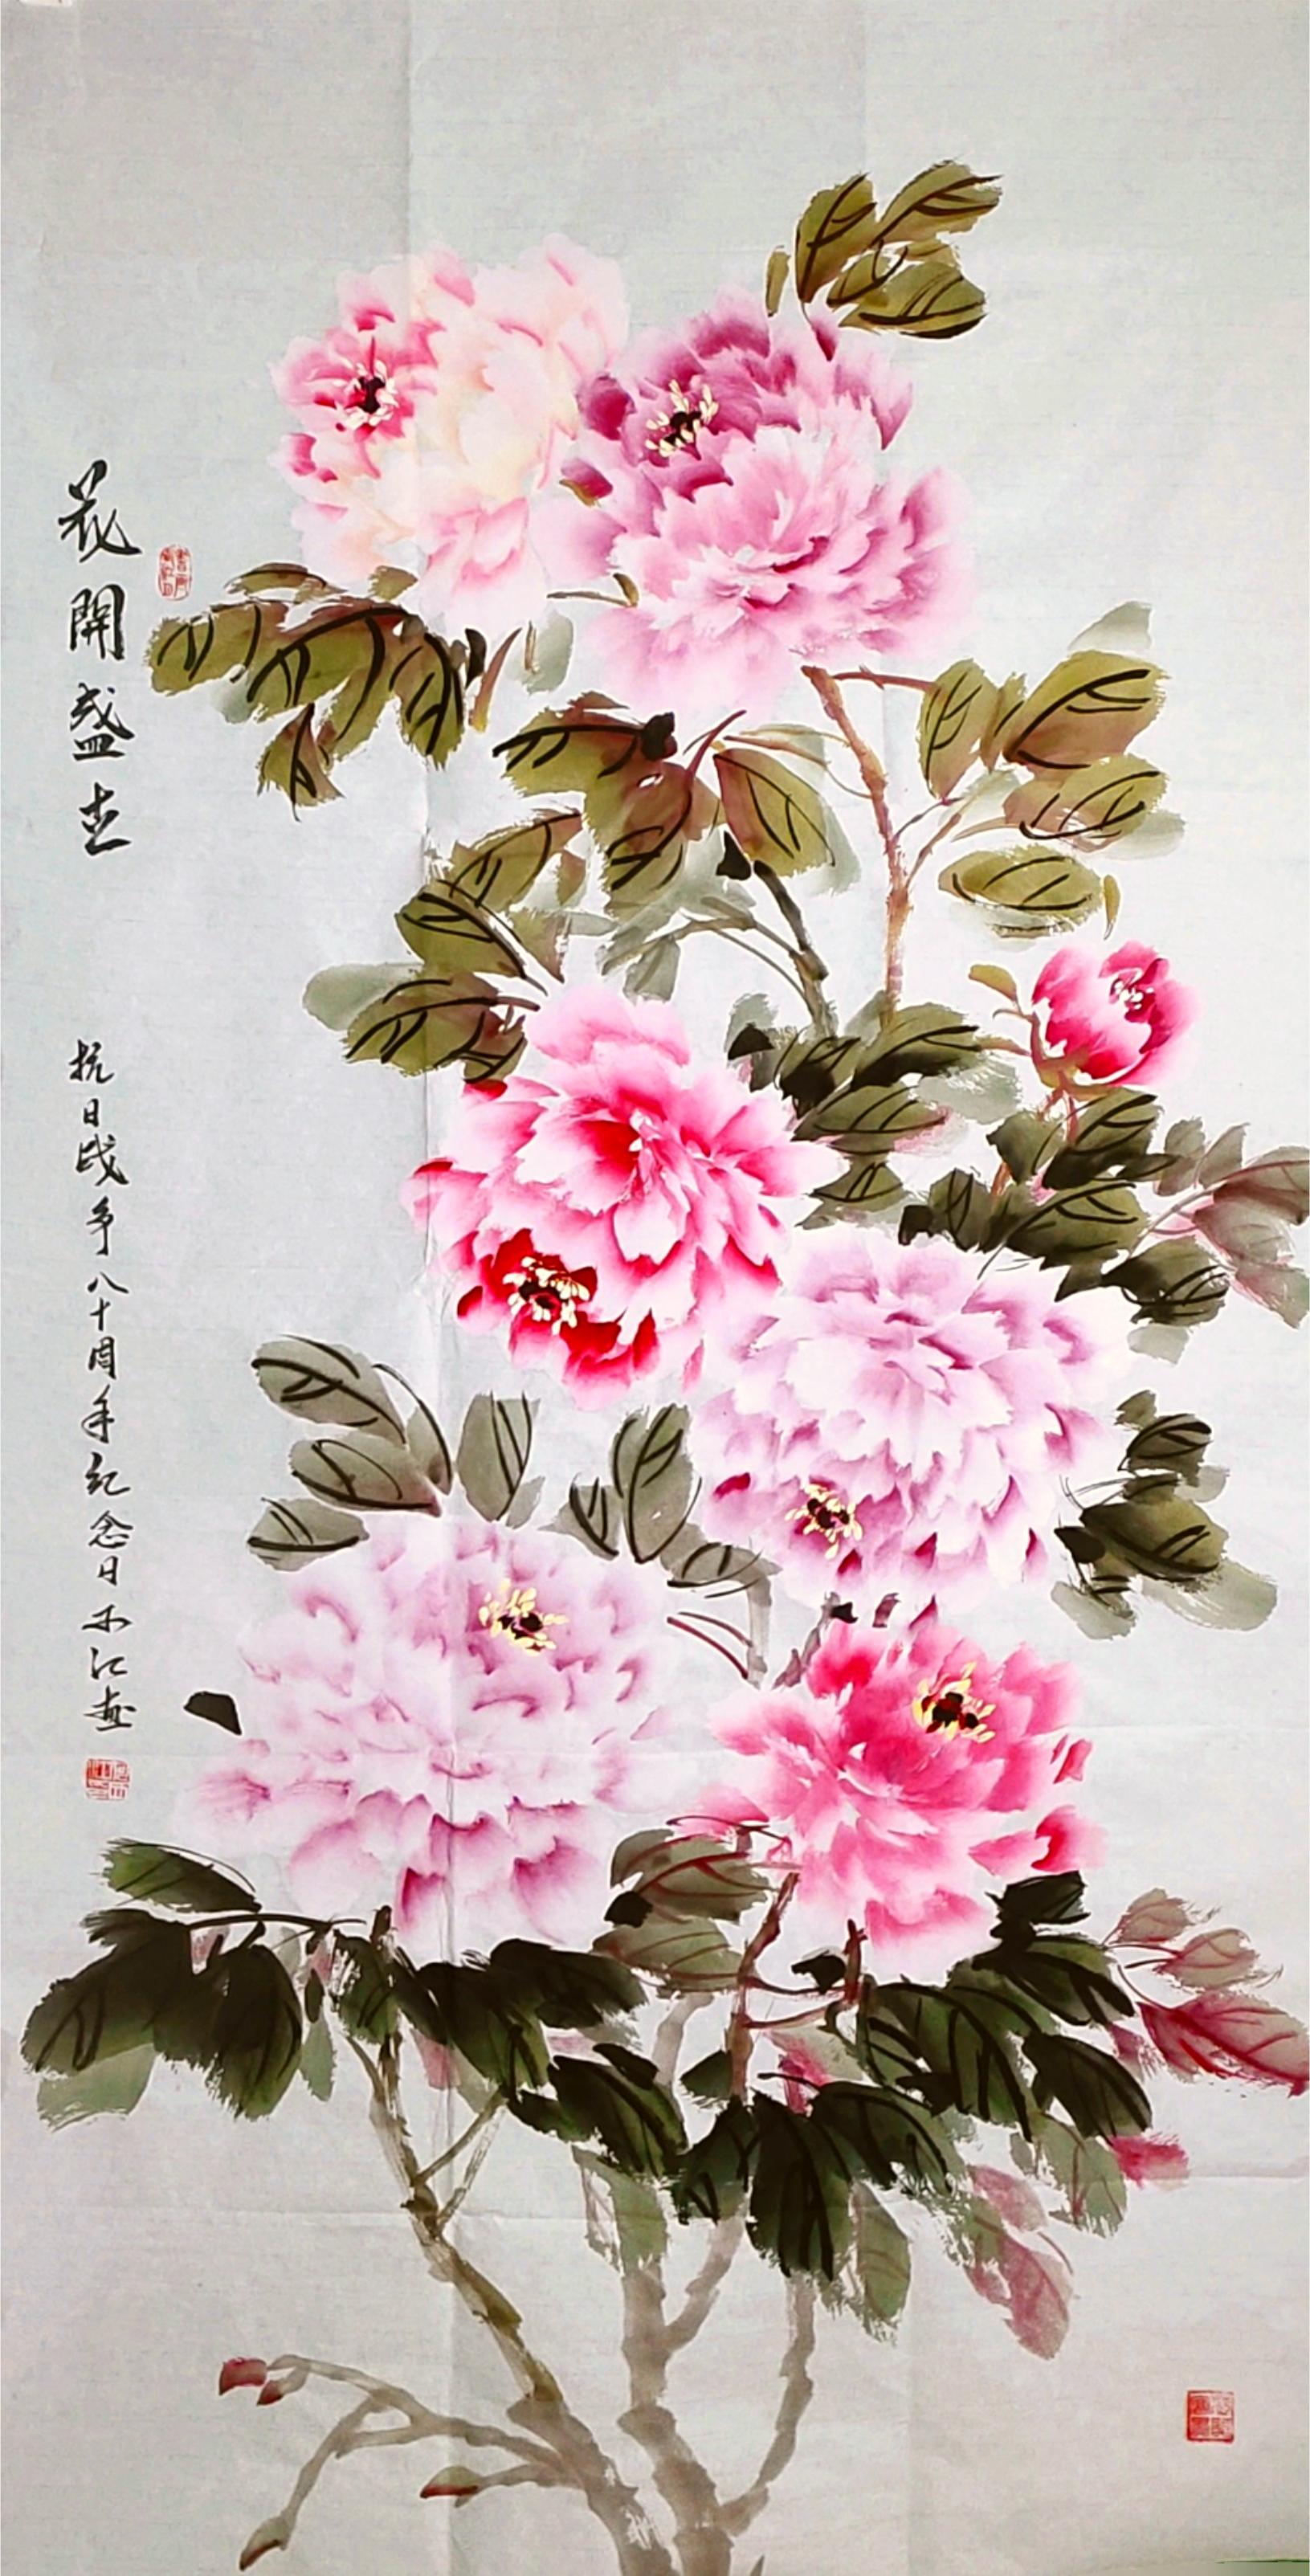 花開盛世
抗日战争八十周年纪念日于江画